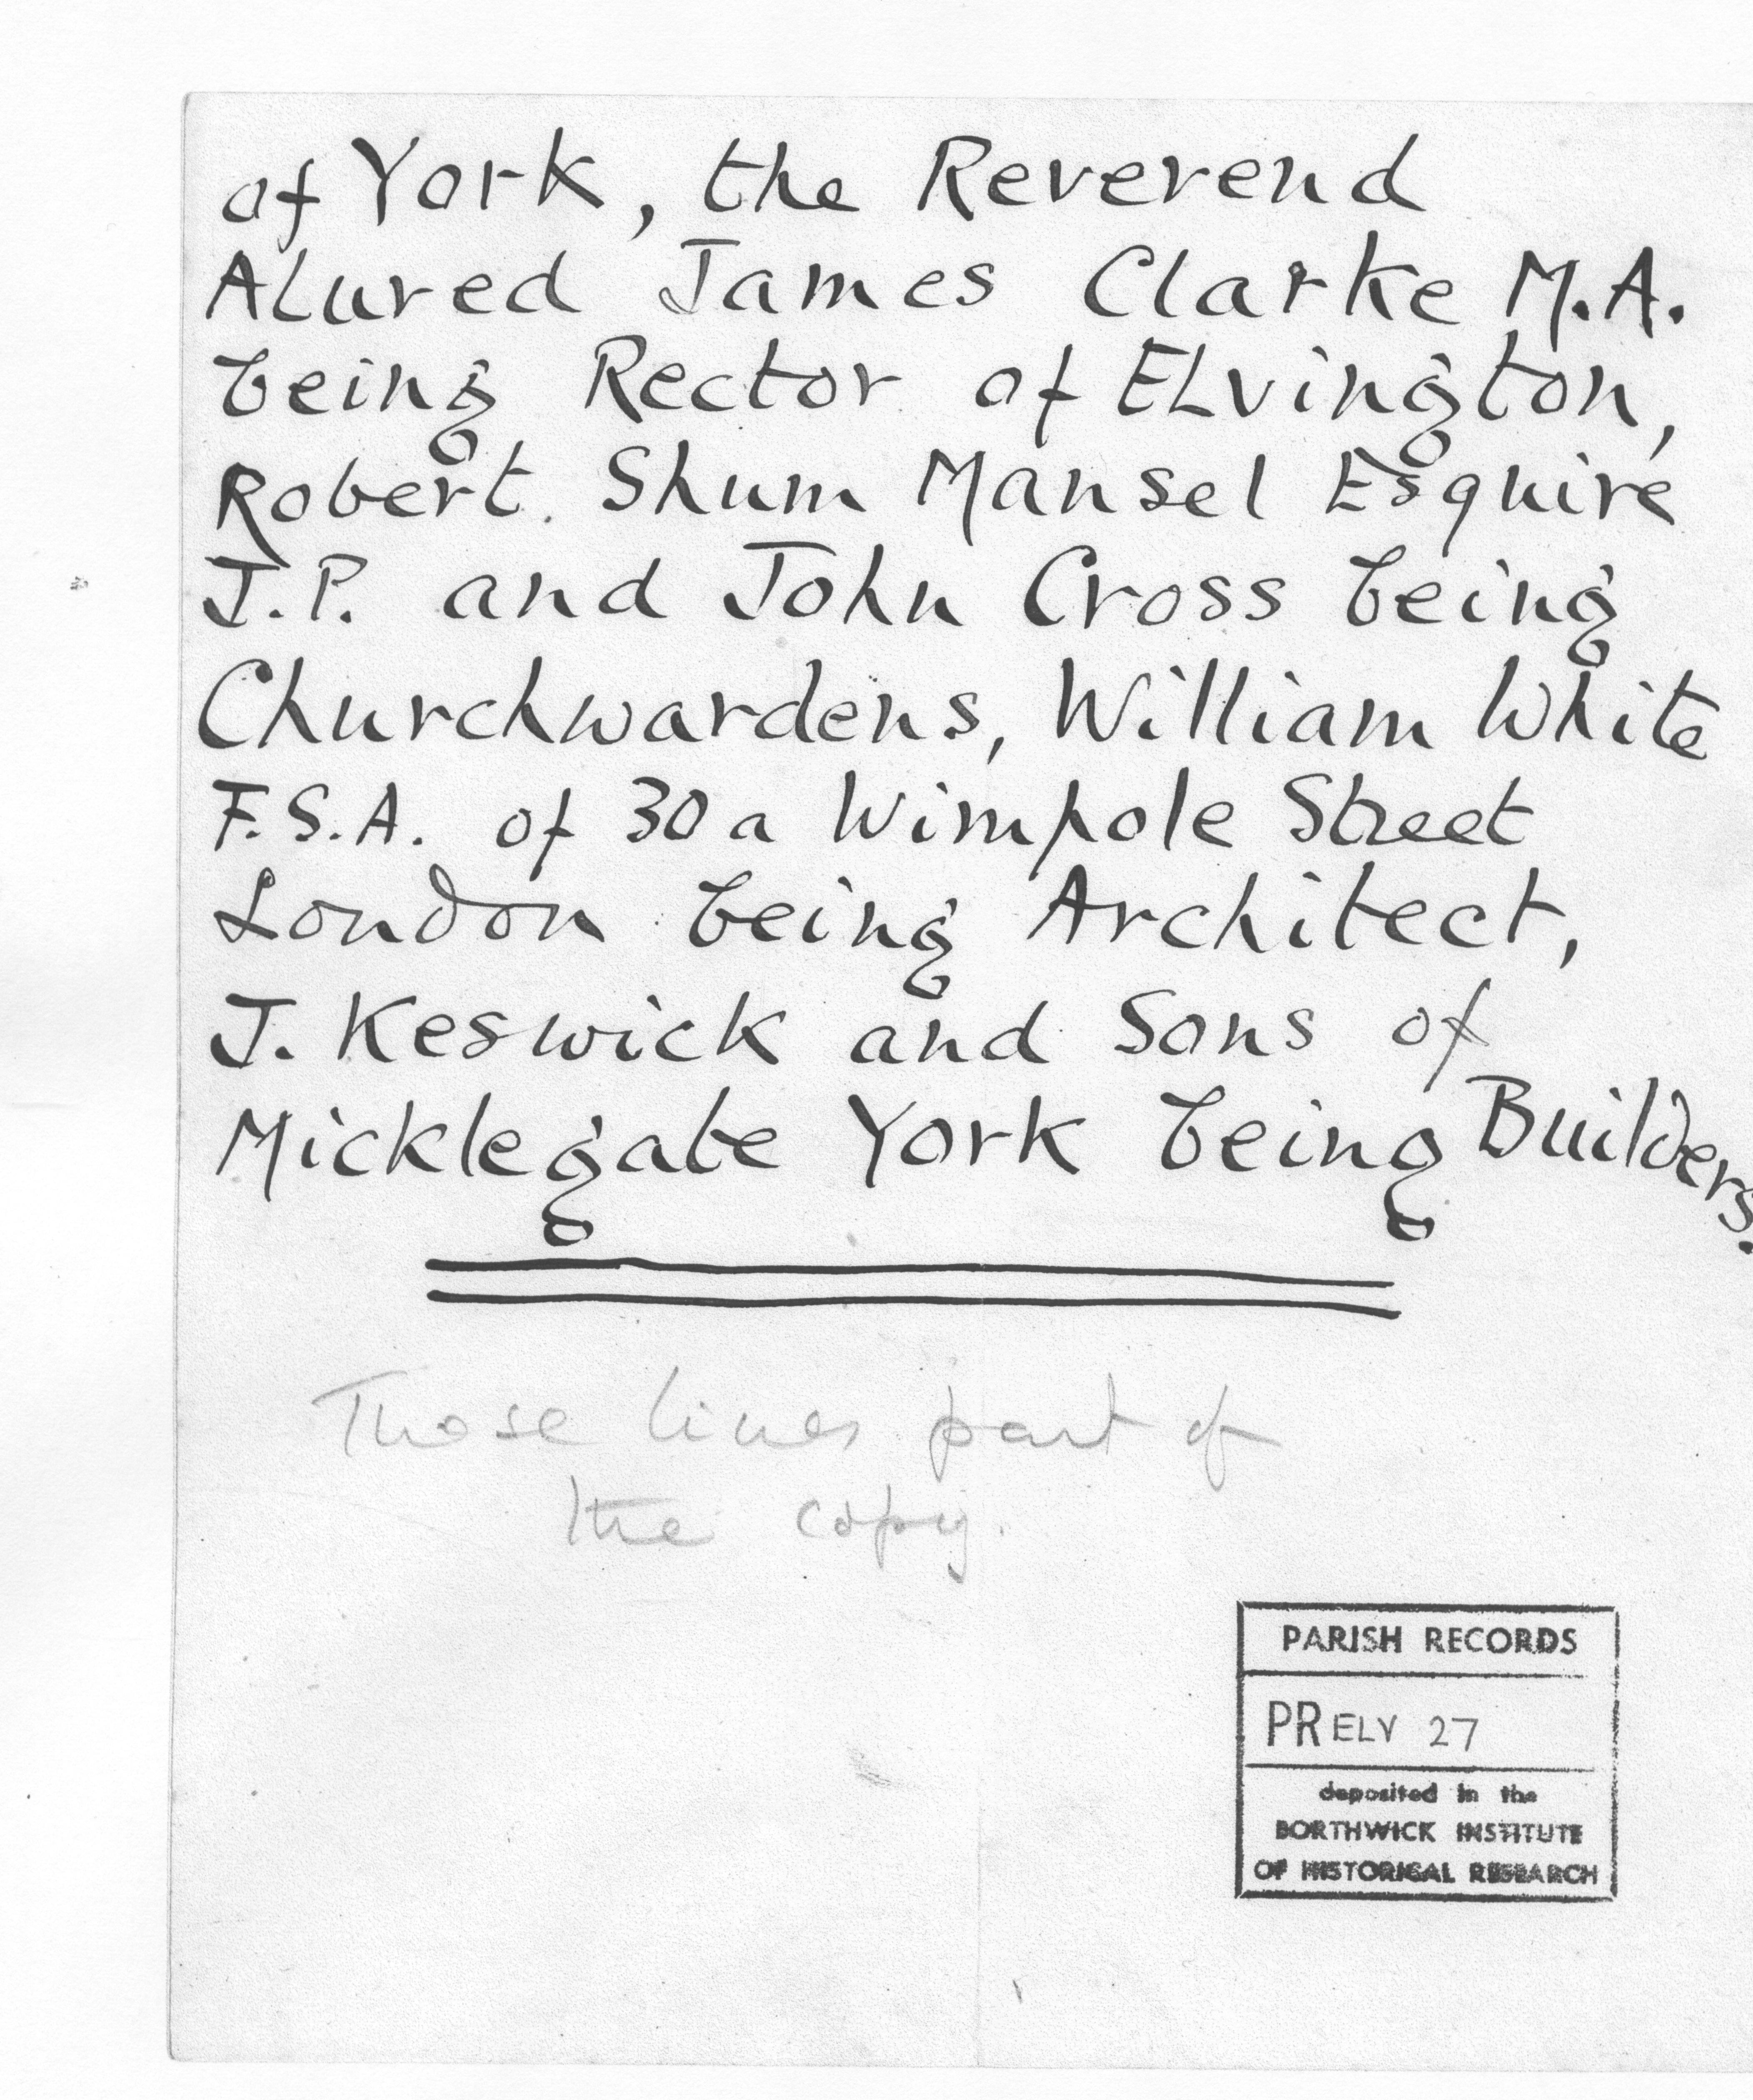 of York, the Reverend
Alured James Clarke M.A.
being Rector of Elvington,
Robert Shum Mansel Esquire
J.P. and John Cross being
Churchwardens, William White
F.S.A. of 30a Wimpole Street
London being Architect,
J. Keswick and Sons of
Micklegate York being Builders.
Those lines part of
the copy.
PARISH RECORDS
PR ELV 27
deposited in the
BORTHWICK INSTITUTE
OF HISTORICAL RESEARCH